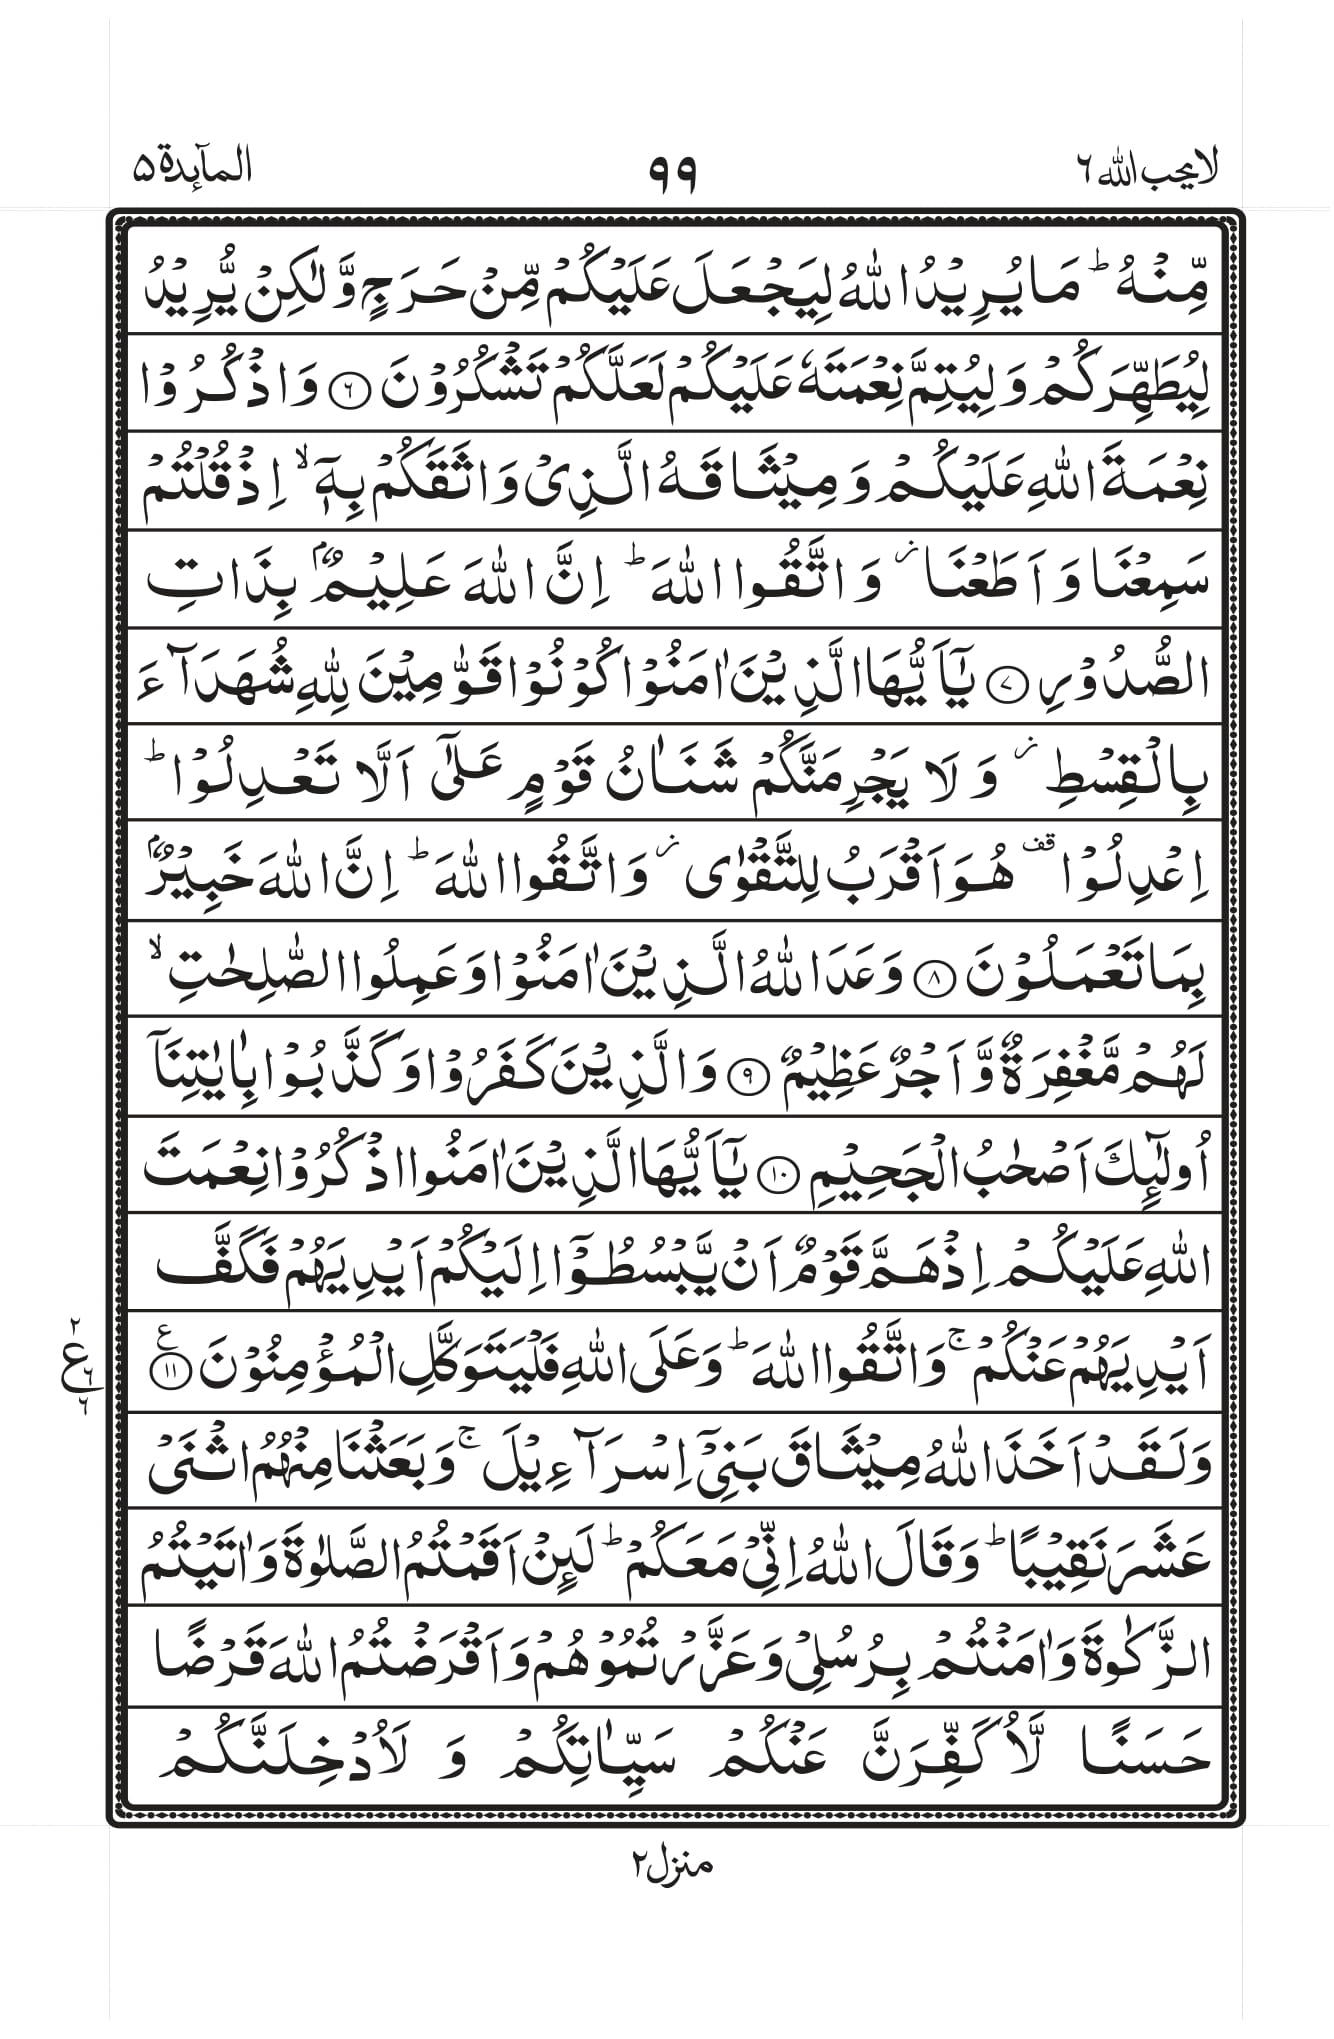 لا یحب اللہ ۶
۹۹
المآئدۃ ۵
مِّنْهُ ؕ مَا یُرِیْدُ اللّٰهُ لِیَجْعَلَ عَلَیْكُمْ مِّنْ حَرَجٍ وَّ لٰكِنْ یُّرِیْدُ
لِیُطَهِّرَكُمْ وَ لِیُتِمَّ نِعْمَتَهٗ عَلَیْكُمْ لَعَلَّكُمْ تَشْكُرُوْنَ ﴿۶﴾ وَ اذْكُرُوْا
نِعْمَةَ اللّٰهِ عَلَیْكُمْ وَ مِیْثَاقَهُ الَّذِیْ وَاثَقَكُمْ بِهٖۤ ۙ اِذْ قُلْتُمْ
سَمِعْنَا وَ اَطَعْنَا ؗ وَ اتَّقُوا اللّٰهَ ؕ اِنَّ اللّٰهَ عَلِیْمٌۢ بِذَاتِ
الصُّدُوْرِ ﴿۷﴾ یٰۤاَیُّهَا الَّذِیْنَ اٰمَنُوْا كُوْنُوْا قَوّٰمِیْنَ لِلّٰهِ شُهَدَآءَ
بِالْقِسْطِ ؗ وَ لَا یَجْرِمَنَّكُمْ شَنَاٰنُ قَوْمٍ عَلٰۤی اَلَّا تَعْدِلُوْا ؕ
اِعْدِلُوْا ۫ هُوَ اَقْرَبُ لِلتَّقْوٰی ؗ وَ اتَّقُوا اللّٰهَ ؕ اِنَّ اللّٰهَ خَبِیْرٌۢ
بِمَا تَعْمَلُوْنَ ﴿۸﴾ وَعَدَ اللّٰهُ الَّذِیْنَ اٰمَنُوْا وَ عَمِلُوا الصّٰلِحٰتِ ۙ
لَهُمْ مَّغْفِرَةٌ وَّ اَجْرٌ عَظِیْمٌ ﴿۹﴾ وَ الَّذِیْنَ كَفَرُوْا وَ كَذَّبُوْا بِاٰیٰتِنَاۤ
اُولٰٓئِكَ اَصْحٰبُ الْجَحِیْمِ ﴿۱۰﴾ یٰۤاَیُّهَا الَّذِیْنَ اٰمَنُوا اذْكُرُوْا نِعْمَتَ
اللّٰهِ عَلَیْكُمْ اِذْ هَمَّ قَوْمٌ اَنْ یَّبْسُطُوْۤا اِلَیْكُمْ اَیْدِیَهُمْ فَكَفَّ
اَیْدِیَهُمْ عَنْكُمْ ۚ وَ اتَّقُوا اللّٰهَ ؕ وَ عَلَی اللّٰهِ فَلْیَتَوَكَّلِ الْمُؤْمِنُوْنَ ﴿۱۱﴾ ع
۲
ع ۶
۶
وَ لَقَدْ اَخَذَ اللّٰهُ مِیْثَاقَ بَنِیْۤ اِسْرَآءِیْلَ ۚ وَ بَعَثْنَا مِنْهُمُ اثْنَیْ
عَشَرَ نَقِیْبًا ؕ وَ قَالَ اللّٰهُ اِنِّیْ مَعَكُمْ ؕ لَىِٕنْ اَقَمْتُمُ الصَّلٰوةَ وَ اٰتَیْتُمُ
الزَّكٰوةَ وَ اٰمَنْتُمْ بِرُسُلِیْ وَ عَزَّرْتُمُوْهُمْ وَ اَقْرَضْتُمُ اللّٰهَ قَرْضًا
حَسَنًا لَّاُكَفِّرَنَّ عَنْكُمْ سَیِّاٰتِكُمْ وَ لَاُدْخِلَنَّكُمْ
منزل ۲